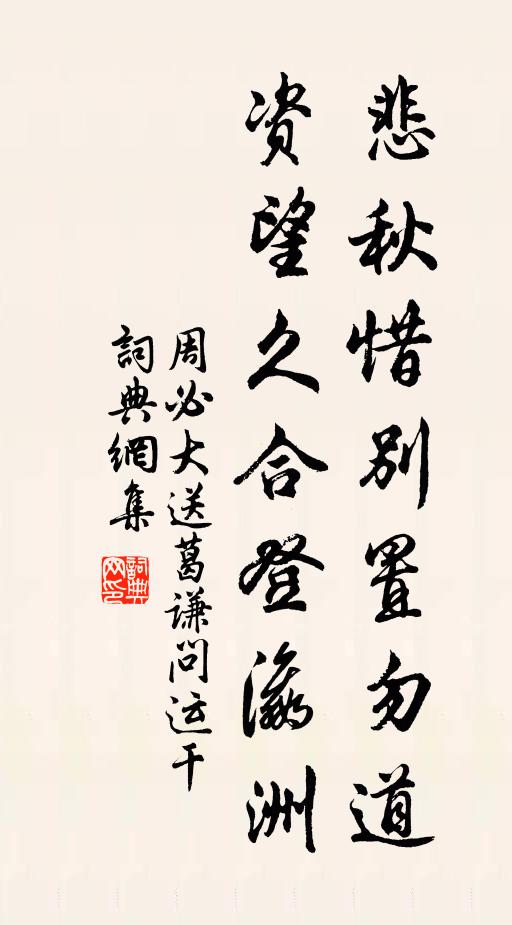 悲秋惜别置勿道
资望久合登瀛洲
周必大送葛谦问运干
詞典網集
詞典网印